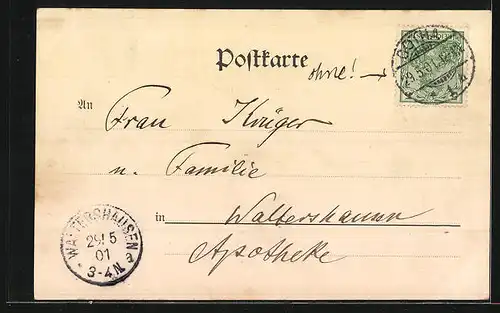 Postkarte
ohne! →
GOTHA
29.5.01
An
Frau Krüger
u. Familie
in Waltershausen
Apotheke
WALTERSHAUSEN
29/5
01
3-4N.
a